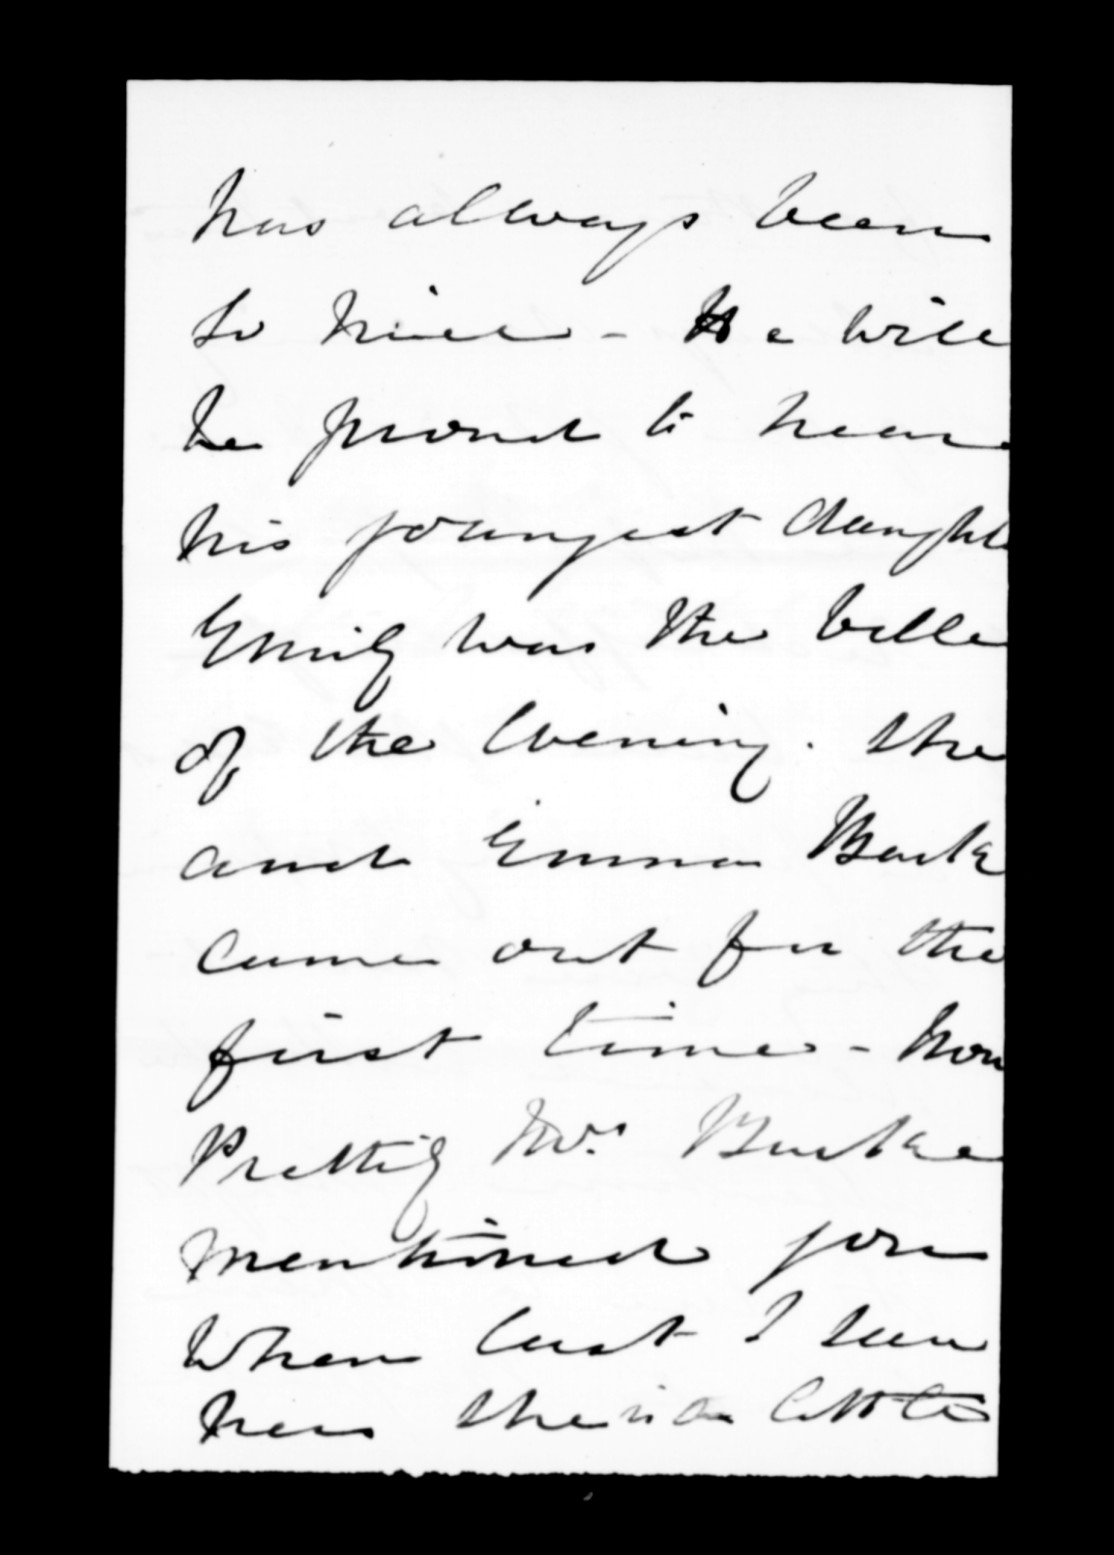 has always been
so nice - He will
be proud to hear
his youngest daught
Emily was the belle
of the Evening. She
and Emma
came out for the
first time - How
Pretty Mrs. Burke
mentioned you
when last I saw
her she is a little